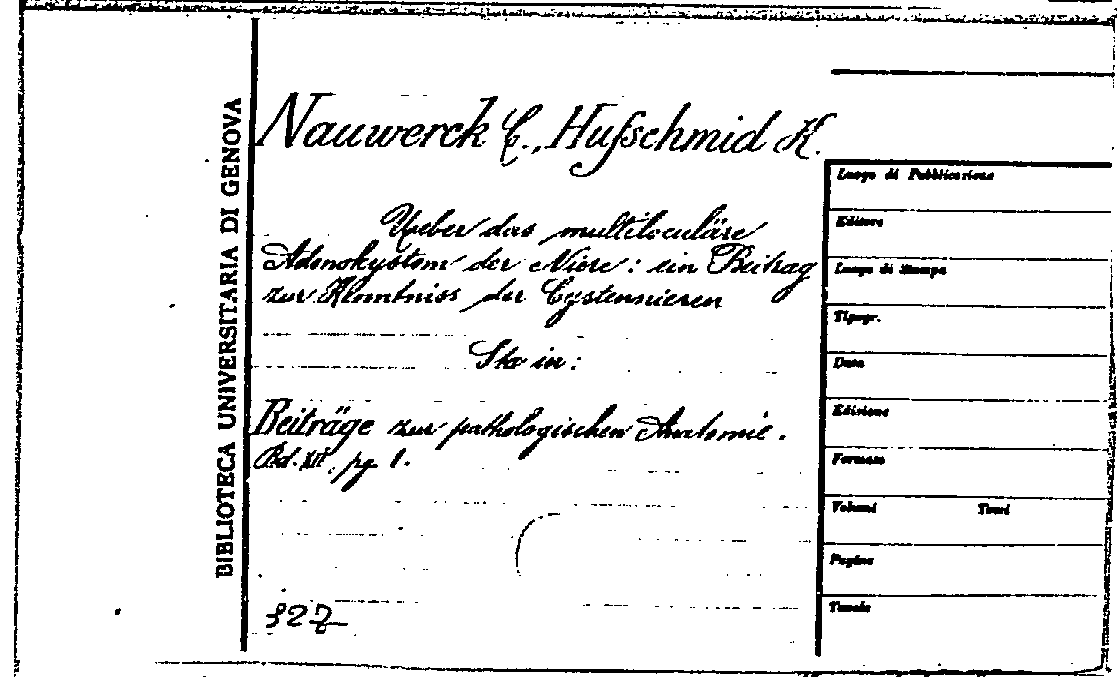 BIBLIOTECA UNIVERSITARIA DI GENOVA
Nauwerck C., Hufschmid K.
Ueber das multiloculäre
Adenokystom der Niere: ein Beitrag
zur Kenntniss der Cystennieren
Sta in:
Beiträge zur pathologischen Anatomie.
Bd. XII, pg. 1.
327
Luogo di Pubblicazione
Editore
Luogo di Stampa
Tipogr.
Data
Edizione
Formato
Volumi Tomi
Pagine
Tavole